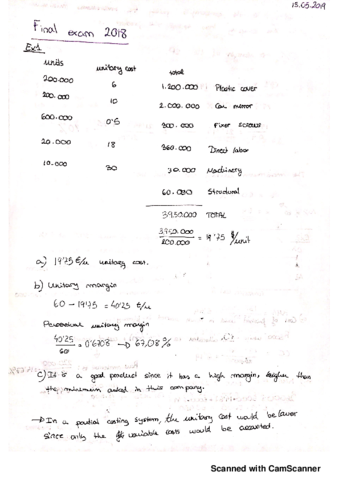 13.05.2019
Final exam 2018
Ex1
units unitary cost total
200.000 6 1.200.000 Plastic cover
200.000 10 2.000.000 Car mirror
600.000 0'5 300.000 Fixer screws
20.000 18 360.000 Direct labor
10.000 30 30.000 Machinery
60.000 Structural
3950.000 TOTAL
3.950.000 / 200.000 = 19'75 €/unit
a) 19'75 €/u unitary cost.
b) Unitary margin
60 - 19'75 = 40'25 €/u
Percentual unitary margin
40'25 / 60 = 0'6708 → 67,08%
c) It is a good product since it has a high margin, higher than
the minimum asked in this company.
→ In a partial costing system, the unitary cost would be lower
since only the variable costs would be accounted.
Scanned with CamScanner